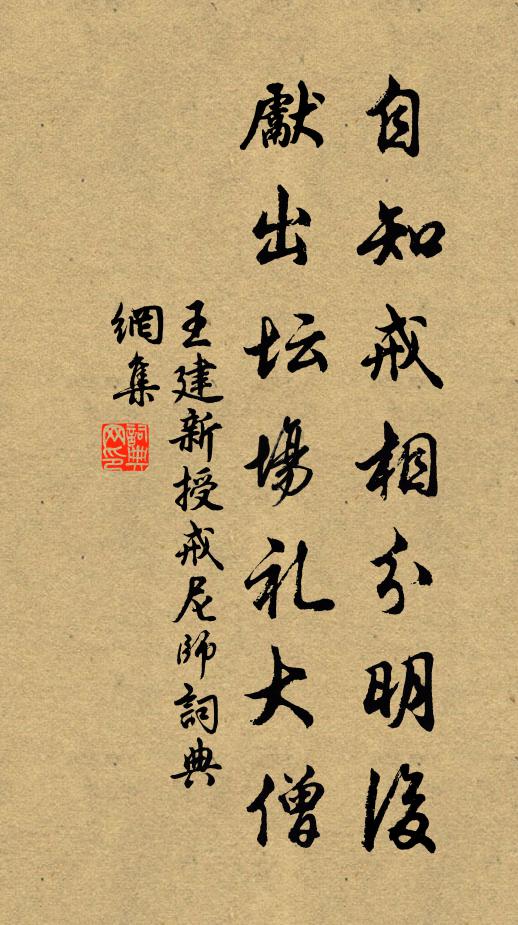 自知戒相分明後
獻出坛場礼大僧
王建新授戒尼師詞典
網集
詞典
网印